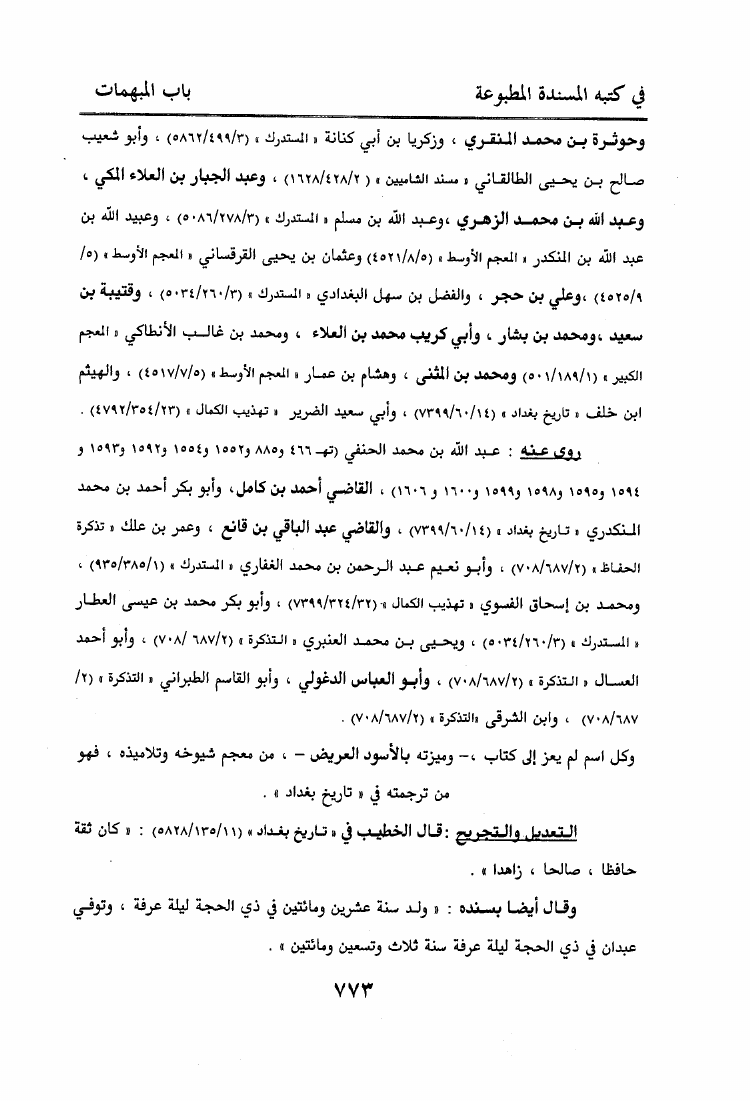 في كتبه المسندة المطبوعة باب المبهمات
وحوثرة بن محمد المنقري ، وزكريا بن أبي كنانة « المستدرك » (٥٨٦٢/٤٩٩/٣) ، وأبو شعيب
صالح بن يحيى الطالقاني « مسند الشاميين » ( ١٦٢٨/٤٢٨/٢) ، وعبد الجبار بن العلاء المكي ،
وعبد الله بن محمد الزهري ،وعبد الله بن مسلم « المستدرك » (٥٠٨٦/٢٧٨/٣) ، وعبيد الله بن
عبد الله بن المنكدر « المعجم الأوسط » (٤٥٢١/٨/٥) وعثمان بن يحيى القرقساني « المعجم الأوسط » (٥/
٤٥٢٥/٩) ،وعلي بن حجر ، والفضل بن سهل البغدادي « المستدرك » (٥٠٣٤/٢٦٠/٣) ، وقتيبة بن
سعيد ،ومحمد بن بشار ، وأبي كريب محمد بن العلاء ، ومحمد بن غالب الأنطاكي « المعجم
الكبير » (٥٠١/١٨٩/١) ومحمد بن المثنى ، وهشام بن عمار « المعجم الأوسط » (٤٥١٧/٧/٥) ، والهيثم
ابن خلف « تاريخ بغداد » (٧٣٩٩/٦٠/١٤) ، وأبي سعيد الضرير « تهذيب الكمال » (٤٧٩٢/٣٥٤/٢٣) .
روى عنه : عبد الله بن محمد الحنفي (تهـ ٤٦٦ و٨٨٥ و١٥٥٢ و١٥٥٤ و١٥٩٢ و١٥٩٣ و
١٥٩٤ و١٥٩٥ و١٥٩٨ و١٥٩٩ و١٦٠٠ و ١٦٠٦) ، القاضي أحمد بن كامل، وأبو بكر أحمد بن محمد
المنكدري « تاريخ بغداد » (٧٣٩٩/٦٠/١٤) ، والقاضي عبد الباقي بن قانع ، وعمر بن علك « تذكرة
الحفاظ » (٧٠٨/٦٨٧/٢) ، وأبو نعيم عبد الرحمن بن محمد الغفاري « المستدرك » (٩٣٥/٣٨٥/١) ،
ومحمد بن إسحاق الفسوي « تهذيب الكمال » (٧٣٩٩/٣٢٤/٣٢) ، وأبو بكر محمد بن عيسى العطار
« المستدرك » (٥٠٣٤/٢٦٠/٣) ، ويحيى بن محمد العنبري « التذكرة » (٦٨٧/٢ /٧٠٨) ، وأبو أحمد
العسال « التذكرة » (٧٠٨/٦٨٧/٢) ، وأبو العباس الدغولي ، وأبو القاسم الطبراني « التذكرة » (٢/
٧٠٨/٦٨٧) ، وابن الشرقي «التذكرة » (٧٠٨/٦٨٧/٢) .
وكل اسم لم يعز إلى كتاب ،– وميزته بالأسود العريض – ، من معجم شيوخه وتلاميذه ، فهو
من ترجمته في « تاريخ بغداد » .
التعديل والتجريح :قال الخطيب في « تاريخ بغداد » (٥٨٢٨/١٣٥/١١) : « كان ثقة
حافظا ، صالحا ، زاهدا » .
وقال أيضا بسنده : « ولد سنة عشرين ومائتين في ذي الحجة ليلة عرفة ، وتوفي
عبدان في ذي الحجة ليلة عرفة سنة ثلاث وتسعين ومائتين » .
٧٧٣